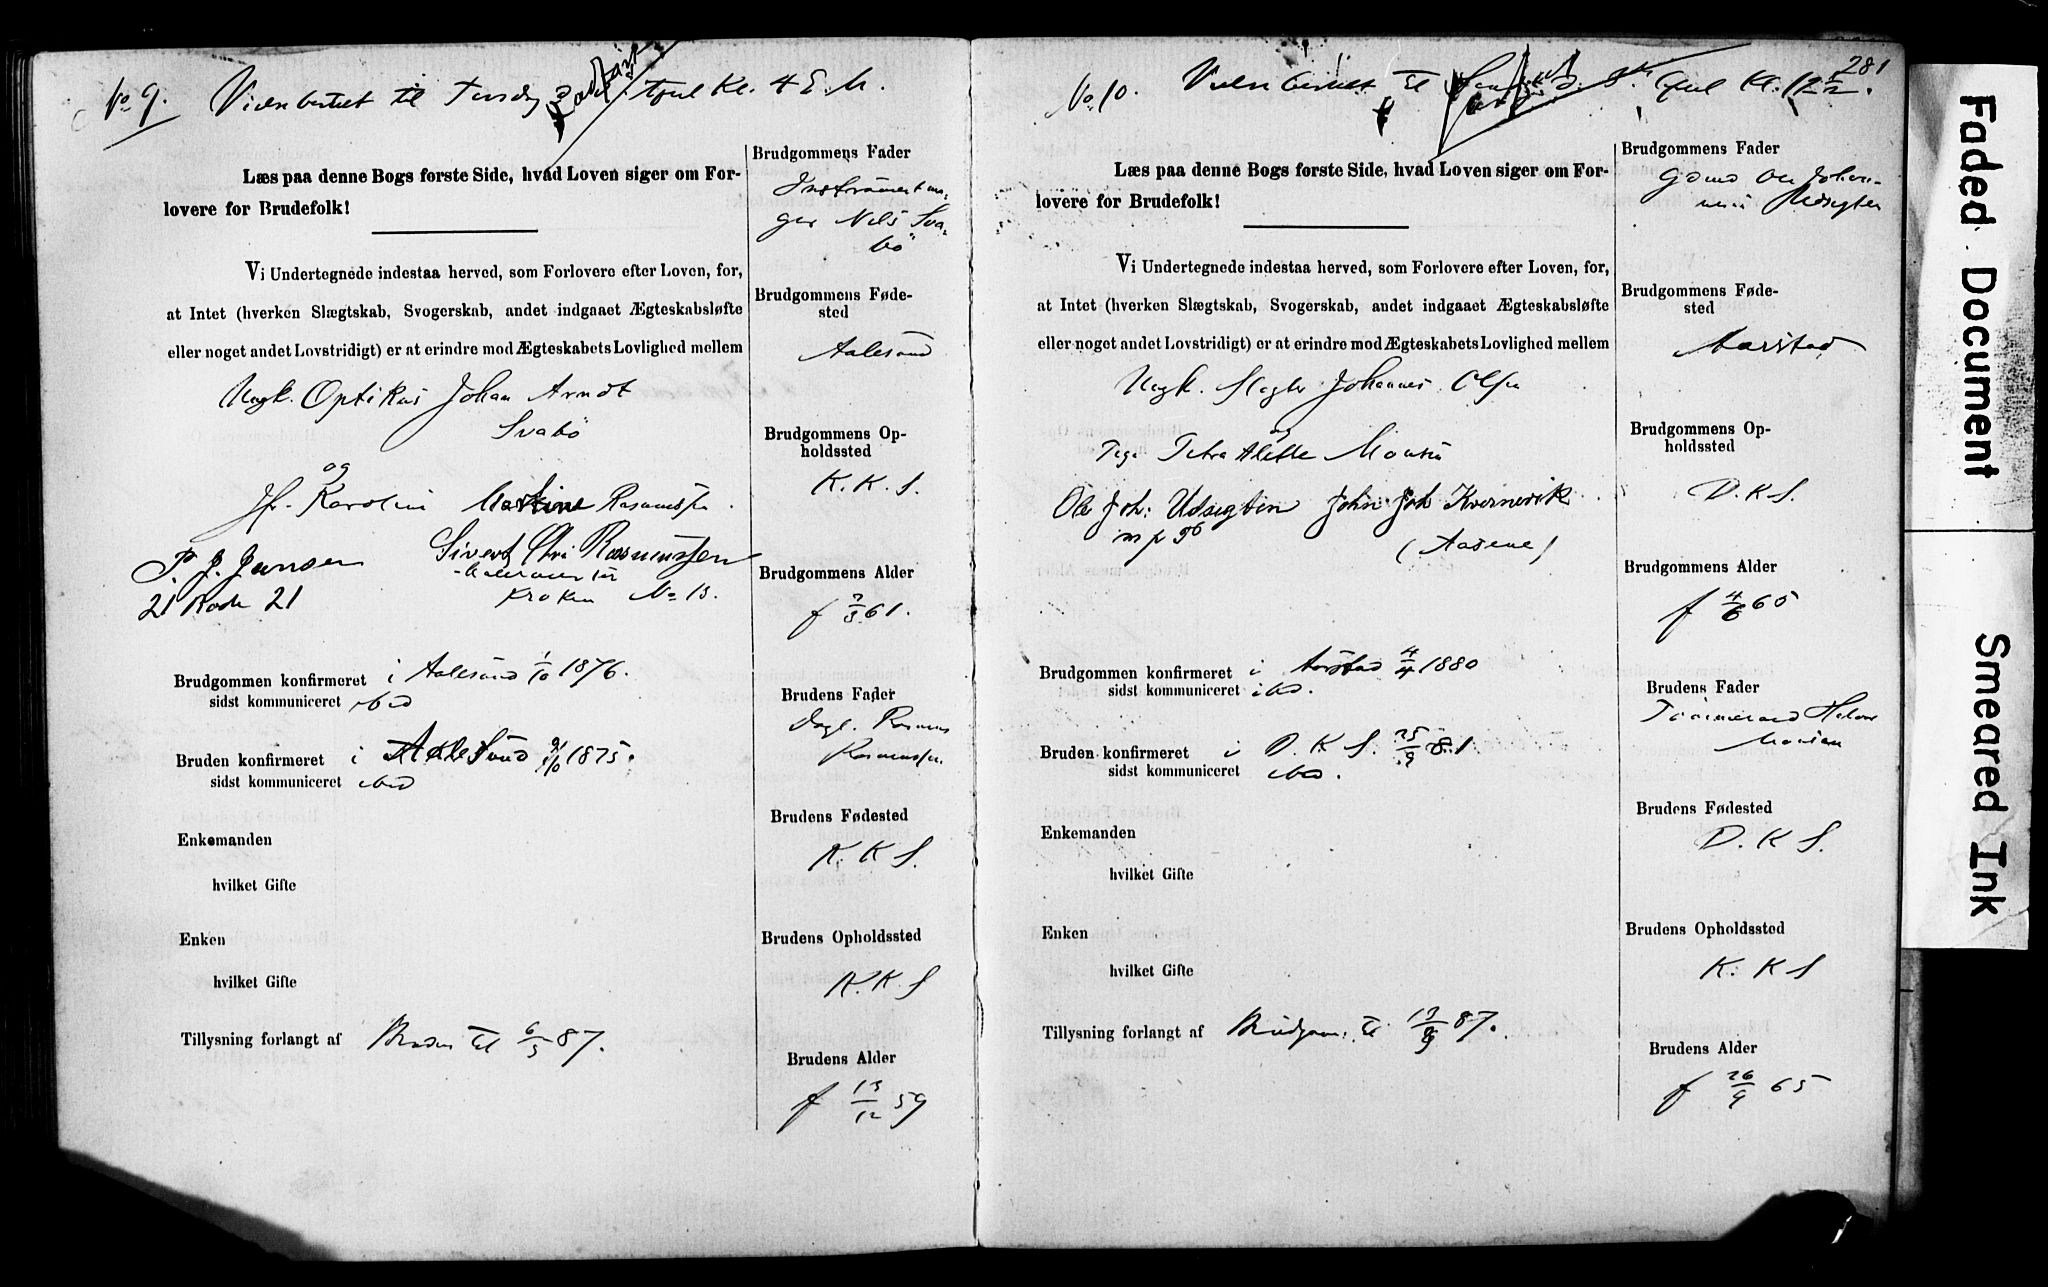 No 9. Vielsen bestilt til Tirsdag April Kl. 4 E. M.
Læs paa denne Bogs første Side, hvad Loven siger om For-
lovere for Brudefolk!
Vi Undertegnede indestaa herved, som Forlovere efter Loven, for,
at Intet (hverken Slægtskab, Svogerskab, andet indgaaet Ægteskabsløfte
eller noget andet Lovstridigt) er at erindre mod Ægteskabets Lovlighed mellem
Ungk. Optikus Johan Arndt
Svabö
og
Jfr. Karoline Martine Rasmussen.
P. J. Jensen
21 Rode 21
Sivert Chri Rasmussen
Malermester
Kroken No 13.
Brudgommen konfirmeret i Aalesund 1/10 1876.
sidst kommuniceret ibid
Bruden konfirmeret i Aalesund 1875.
sidst kommuniceret ibid
Enkemanden
hvilket Gifte
Enken
hvilket Gifte
Tillysning forlangt af Bruden til 6/3 87.
Brudgommens Fader
Instrumentma-
ger Nils Sva-
bö
Brudgommens Føde-
sted
Aalesund
Brudgommens Op-
holdssted
K. K. S.
Brudgommens Alder
f 61.
Brudens Fader
Dagl. Rasmus
Rasmussen
Brudens Fødested
K. K S.
Brudens Opholdssted
K. K. S
Brudens Alder
f 13/12 59
281
No. 10. Vielsen bestilt til April Kl. 12 1/2.
Læs paa denne Bogs første Side, hvad Loven siger om For-
lovere for Brudefolk!
Vi Undertegnede indestaa herved, som Forlovere efter Loven, for,
at Intet (hverken Slægtskab, Svogerskab, andet indgaaet Ægteskabsløfte
eller noget andet Lovstridigt) er at erindre mod Ægteskabets Lovlighed mellem
Ungk. Slagter Johannes Olsen
og
Pige Petra Alette Monsen
Ole Joh: Udsigten John Joh Kvernevik
m p P
(Aasene)
Brudgommen konfirmeret i Aarstad 4/4 1880
sidst kommuniceret ibid.
Bruden konfirmeret i D. K S. 25/9 81
sidst kommuniceret ibid.
Enkemanden
hvilket Gifte
Enken
hvilket Gifte
Tillysning forlangt af Brudgom. til 87.
Brudgommens Fader
Gdmd Ole Johan-
nesen Udsigten
Brudgommens Føde-
sted
Aarstad
Brudgommens Op-
holdssted
D. K S.
Brudgommens Alder
f 4/6 65
Brudens Fader
Tømmermand
Monsen
Brudens Fødested
D. K S.
Brudens Opholdssted
K. K S
Brudens Alder
f 26/9 65
Faded Document
Smeared Ink